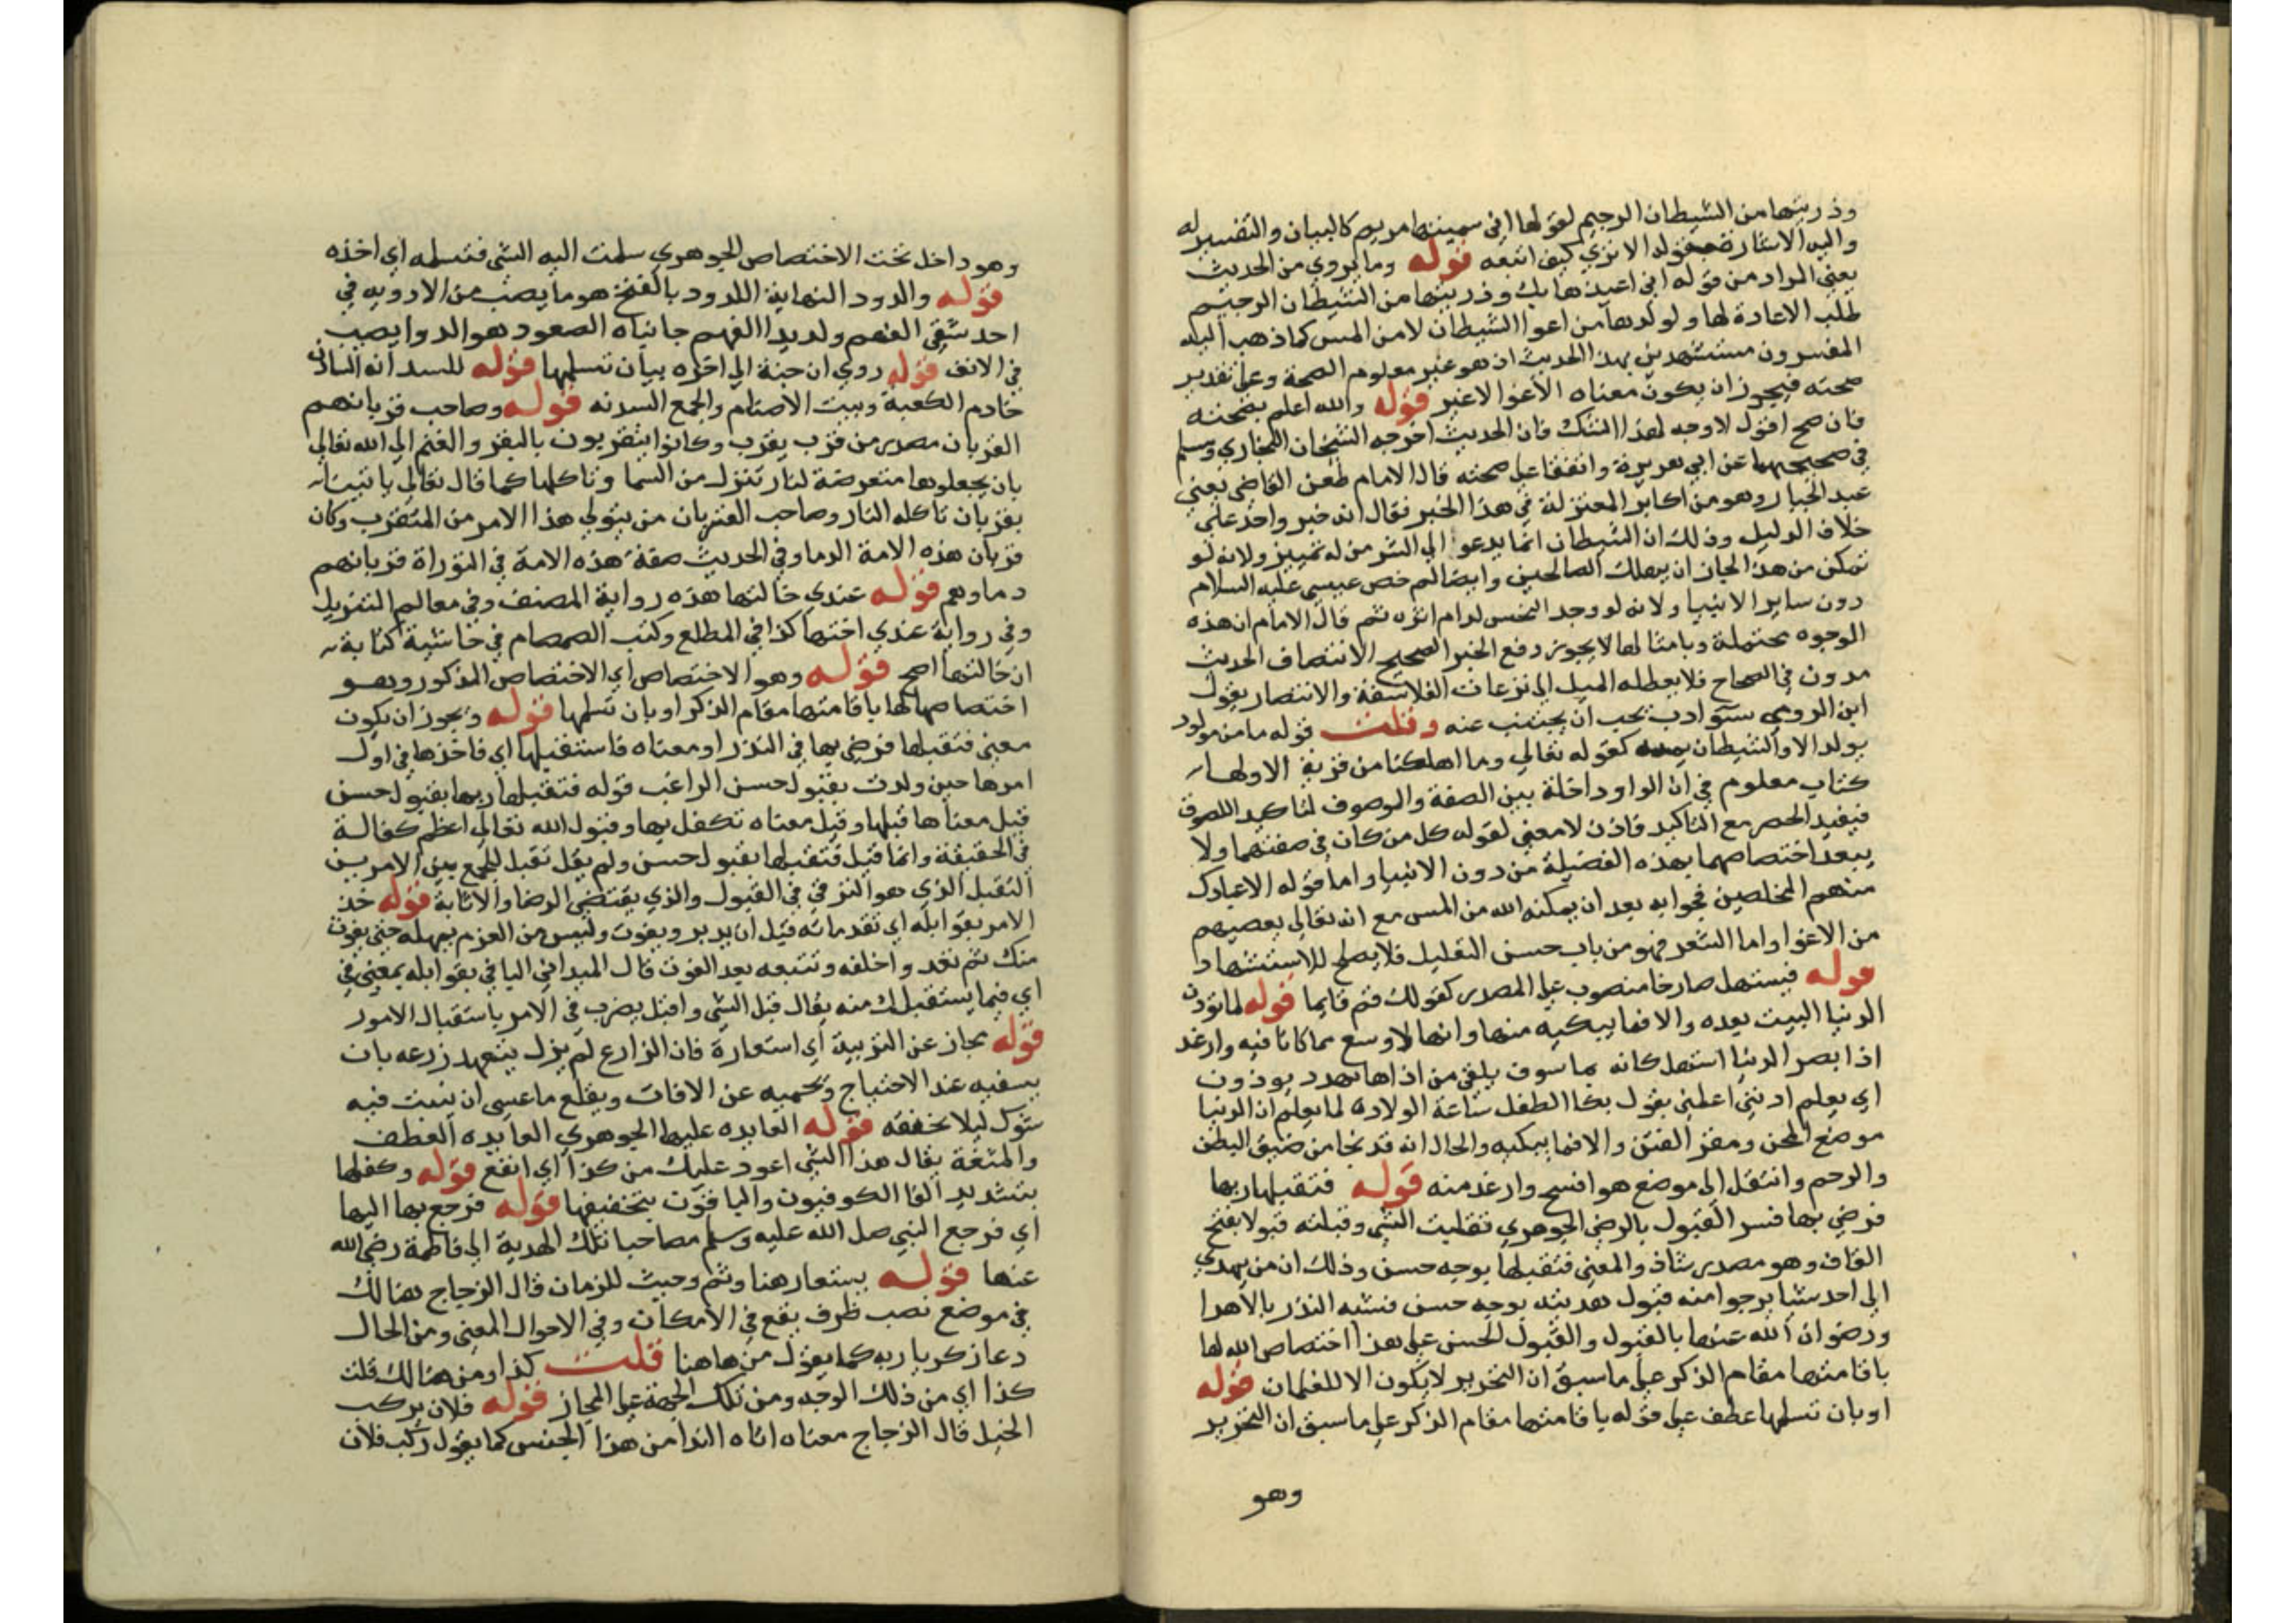 وذريتها من الشيطان الرجيم لقولها اني سميتها مريم كالبيان والتفسير له
واليه الاشارة بقوله الا تري كيف اتبعه قوله وما يروي من الحديث
يعني المراد من قوله اني اعيذها بك وذريتها من الشيطان الرجيم
طلب الاعاذة لها ولولدها من اغوا الشيطان لا من المس كما ذهب اليه
المفسرون مستشهدين بهذا الحديث اذ هو غير معلوم الصحة وعلي تقدير
صحته فيجوز ان يكون معناه الاغوا لا غير قوله والله اعلم بصحته
فان صح اقول لا وجه لهذا الشك فان الحديث اخرجه الشيخان البخاري ومسلم
في صحيحيهما عن ابي هريرة واتفقا علي صحته قال الامام طعن القاضي يعني
عبد الجبار وهو من اكابر المعتزلة في هذا الخبر فقال انه خبر واحد علي
خلاف الدليل وذلك ان الشيطان انما يدعو الي الشر من له تمييز ولانه لو
تمكن من هذا لجاز ان يهلك الصالحين وايضا لم خص عيسي عليه السلام
دون ساير الانبيا ولانه لو وجد النخس لدام اثره ثم قال الامام ان هذه
الوجوه محتملة وبامثالها لا يجوز دفع الخبر الصحيح الانتصاف الحديث
مدون في الصحاح فلا يعطله الميل الي نزعات الفلاسفة والانتصار بقول
ابن الرومي سوّ ادب يجب ان يجتنب عنه وقلت قوله ما من مولود
يولد الا والشيطان يمسه كقوله تعالي وما اهلكنا من قرية الا ولها
كتاب معلوم في ان الواو داخلة بين الصفة والموصوف لتاكيد اللصوق
فيفيد الحصر مع التاكيد فاذن لا معني لقوله كل من كان في صفتهما ولا
يبعد اختصاصهما بهذه الفضيلة من دون الانبيا واما قوله الا عبادك
منهم المخلصين فجوابه بعد ان يمكنه الله من المس مع انه تعالي يعصمهم
من الاغوا واما الشعر فهو من باب حسن التعليل فلا يصلح للاستشهاد
قوله فيستهل صارخا منصوب علي المصدر كقولك قم قايما قوله لما تؤذن
الدنيا البيت بعده والا فما يبكيه منها وانها لاوسع مما كان فيه وارغد
اذا ابصر الدنيا استهل كانه بما سوف يلقي من اذاها يهدد يوذون
اي يعلم اذنني اعلمني يقول بكا الطفل ساعة الولادة لما يعلم ان الدنيا
موضع المحن ومقر الفتن والا فما يبكيه والحال انه قد نجا من ضيق البطن
والرحم وانتقل الي موضع هو افسح وارغد منه قوله فتقبلها ربها
فرضي بها فسر القبول بالرضي الجوهري تقبلت الشي وقبلته قبولا بفتح
القاف وهو مصدر شاذ والمعني فتقبلها بوجه حسن وذلك ان من يهدي
الي احد شيا يرجوا منه قبول هديته بوجه حسن فشبه النذر بالاهدا
ورضوان الله عنها بالقبول والقبول الحسن علي هذا اختصاص الله لها
باقامتها مقام الذكر علي ما سبق ان التحرير لا يكون الا للغلمان قوله
او بان تسلمها عطف علي قوله باقامتها مقام الذكر علي ما سبق ان التحرير
وهو
وهو داخل تحت الاختصاص الجوهري سلمت اليه الشي فتسلمه اي اخذه
قوله والدود النهاية اللدود بالفتح هو ما يصب من الادوية في
احد شقي الفم ولديدا الفم جانباه الصعود هو الدوا يصب
في الانف قوله روي ان حنة الي اخره بيان تسلمها قوله للسدانه السادن
خادم الكعبة وبيت الاصنام والجمع السدنه قوله وصاحب قربانهم
القربان مصدر من قرب يقرب وكانوا يتقربون بالبقر والغنم الي الله تعالي
بان يجعلوها متعرضة لنار تنزل من السما وتاكلها كما قال تعالي ياتينا
بقربان تاكله النار وصاحب القربان من يتولي هذا الامر من المتقرب وكان
قربان هذه الامة الدما وفي الحديث صفة هذه الامة في التوراة قربانهم
دماوهم قوله عندي خالتها هذه رواية المصنف وفي معالم التنزيل
وفي رواية عندي اختها كذا في المطلع وكتب الصمصام في حاشية كتابه
ان خالتها اصح قوله وهو الاختصاص اي الاختصاص المذكور وهو
اختصاصها لها باقامتها مقام الذكر او بان تسلمها قوله ويجوز ان يكون
معني فتقبلها فرضي بها في النذر او معناه فاستقبلها اي فاخذها في اول
امرها حين ولدت بقبول حسن الراغب قوله فتقبلها ربها بقبول حسن
قيل معناها قبلها وقيل معناه تكفل بها وقبول الله تعالي اعظم كفالة
في الحقيقة وانما قيل فتقبلها بقبول حسن ولم يقل تقبل للجمع بين الامرين
التقبل الذي هو الترقي في القبول والذي يقتضي الرضا والاثابة قوله خذ
الامر بقوابله اي تقدماته قبل ان يدبر ويفوت وليس من العزم يمهله حتي يفوت
منك ثم تعد واخلفه وتتبعه بعد الفوت قال الميداني اليا في بقوابله بمعني في
اي فيما يستقبلك منه يقال قبل الشي واقبل يضرب في الامر باستقبال الامور
قوله مجاز عن التربية اي استعارة فان الزارع لم يزل يتعهد زرعه بان
يسقيه عند الاحتياج ويحميه عن الافات ويقلع ما عسي ان ينبت فيه
شوك ليلا يخنقه قوله العايده عليها الجوهري العايده العطف
والمنفعة يقال هذا الشي اعود عليك من كذا اي انفع قوله وكفلها
بتشديد الفا الكوفيون والباقون بتخفيفها قوله فرجع بها اليها
اي فرجع النبي صلي الله عليه وسلم مصاحبا تلك الهدية الي فاطمة رضي الله
عنها قوله يستعار هنا وثم وحيث للزمان قال الزجاج هنالك
في موضع نصب ظرف يقع في الامكان وفي الاحوال المعني ومن الحال
دعا زكريا ربه كما يقول من هاهنا قلت كذا ومن هنالك قلت
كذا اي من ذلك الوجه ومن تلك الجهة علي المجاز قوله فلان يركب
الخيل قال الزجاج معناه اتاه الندا من هذا الجنس كما يقول ركب فلان